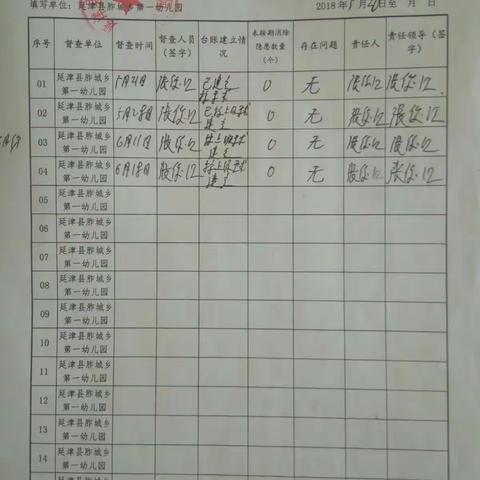 填写单位: 延津县胙城乡第一幼儿园 2018年5月21日至 月 日
序号 督查单位 督查时间 督查人员(签字) 台账建立情况 未按期消除隐患数量(个) 存在问题 责任人 责任领导(签字)
01 延津县胙城乡第一幼儿园 5月21日 已建立 0 无
02 延津县胙城乡第一幼儿园 5月28日 已按上级要求建立 0 无
03 延津县胙城乡第一幼儿园 6月11日 按上级要求建立 0 无
04 延津县胙城乡第一幼儿园 6月18日 按上级要求建立 0 无
05 延津县胙城乡第一幼儿园
06 延津县胙城乡第一幼儿园
07 延津县胙城乡第一幼儿园
08 延津县胙城乡第一幼儿园
09 延津县胙城乡第一幼儿园
10 延津县胙城乡第一幼儿园
11 延津县胙城乡第一幼儿园
12 延津县胙城乡第一幼儿园
13 延津县胙城乡第一幼儿园
14 延津县胙城乡第一幼儿园